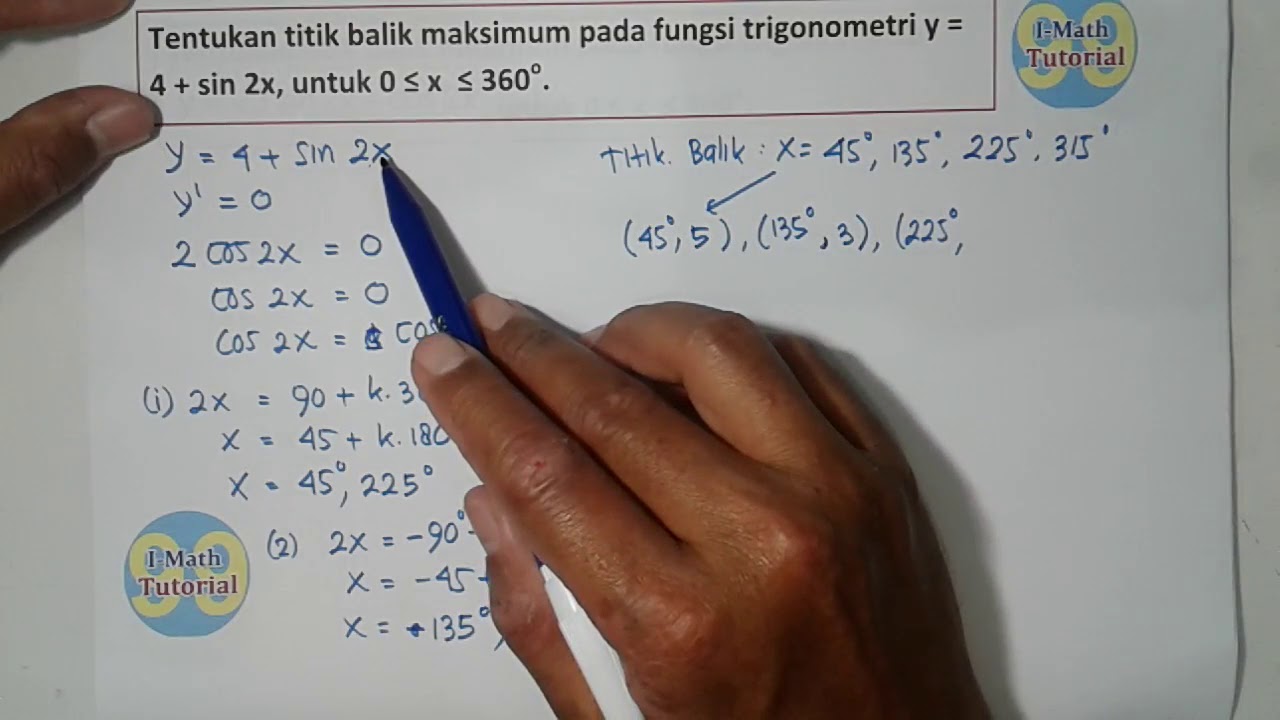 Tentukan titik balik maksimum pada fungsi trigonometri y =
4 + sin 2x, untuk 0 ≤ x ≤ 360°.
I-Math
Tutorial
y = 4 + sin 2x
y' = 0
2 cos 2x = 0
cos 2x = 0
cos 2x = cos
(i) 2x = 90 + k.3
x = 45 + k.180
x = 45°, 225°
(2) 2x = -90°
x = -45
x = 135°,
Titik Balik : x = 45°, 135°, 225°, 315°
(45°, 5), (135°, 3), (225°,
I-Math
Tutorial